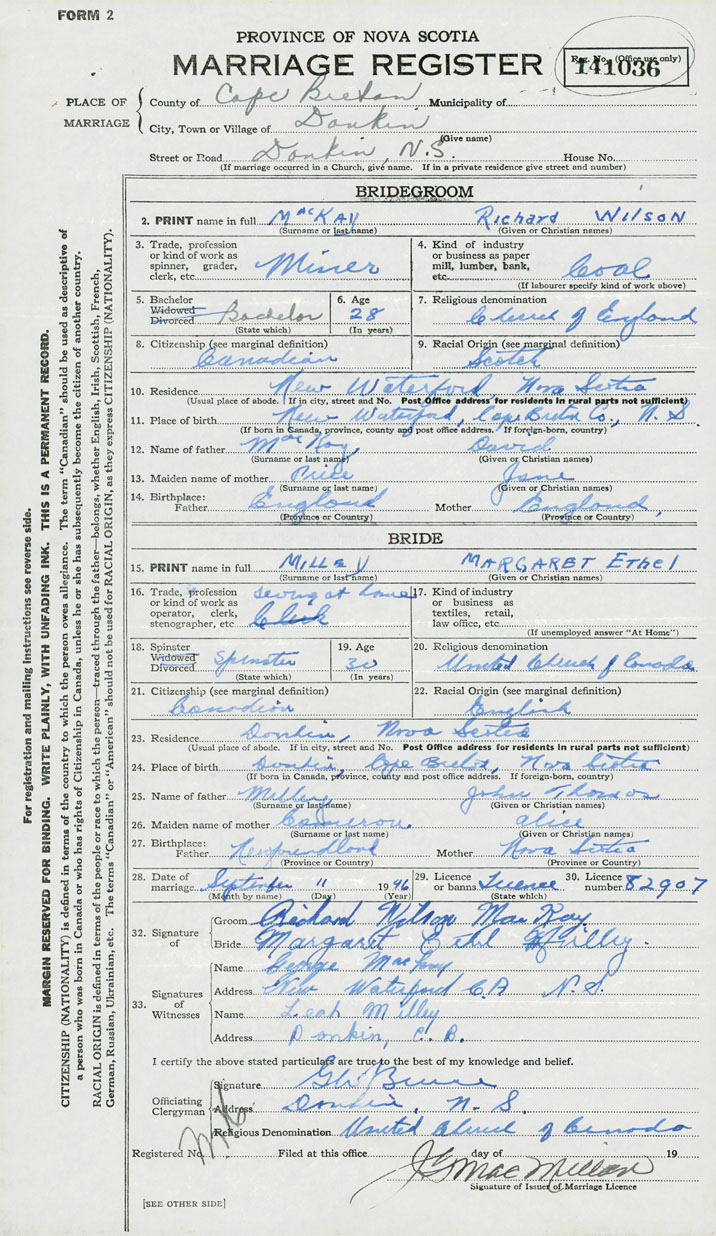 FORM 2
PROVINCE OF NOVA SCOTIA
MARRIAGE REGISTER
Reg. No. (Office use only)
141036
PLACE OF MARRIAGE
County of Cape Breton Municipality of
City, Town or Village of Donkin
(Give name)
Street or Road Donkin, N.S. House No.
(If marriage occurred in a Church, give name. If in a private residence give street and number)
BRIDEGROOM
2. PRINT name in full MacKAY Richard WILSON
(Surname or last name) (Given or Christian names)
3. Trade, profession or kind of work as spinner, grader, clerk, etc. Miner
4. Kind of industry or business as paper mill, lumber, bank, etc. Coal
(If labourer specify kind of work above)
5. Bachelor Widowed Divorced Bachelor
(State which)
6. Age 28
(In years)
7. Religious denomination
Church of England
8. Citizenship (see marginal definition)
Canadian
9. Racial Origin (see marginal definition)
Scotch
10. Residence New Waterford, Nova Scotia
(Usual place of abode. If in city, street and No. Post Office address for residents in rural parts not sufficient)
11. Place of birth New Waterford, Cape Breton Co., N.S.
(If born in Canada, province, county and post office address. If foreign-born, country)
12. Name of father MacKay, David
(Surname or last name) (Given or Christian names)
13. Maiden name of mother Price Jane
(Surname or last name) (Given or Christian names)
14. Birthplace:
Father England Mother England,
(Province or Country) (Province or Country)
BRIDE
15. PRINT name in full MILLEY MARGARET Ethel
(Surname or last name) (Given or Christian names)
16. Trade, profession or kind of work as operator, clerk, stenographer, etc. at home Clerk
17. Kind of industry or business as textiles, retail, law office, etc.
(If unemployed answer "At Home")
18. Spinster Widowed Divorced Spinster
(State which)
19. Age 30
(In years)
20. Religious denomination
United Church of Canada
21. Citizenship (see marginal definition)
Canadian
22. Racial Origin (see marginal definition)
English
23. Residence Donkin, Nova Scotia
(Usual place of abode. If in city, street and No. Post Office address for residents in rural parts not sufficient)
24. Place of birth Donkin, Cape Breton, Nova Scotia
(If born in Canada, province, county and post office address. If foreign-born, country)
25. Name of father Milley John Thomas
(Surname or last name) (Given or Christian names)
26. Maiden name of mother Cameron. Alice
(Surname or last name) (Given or Christian names)
27. Birthplace:
Father Newfoundland Mother Nova Scotia
(Province or Country) (Province or Country)
28. Date of marriage September 11 1946
(Month by name) (Day) (Year)
29. Licence or banns Licence
(State which)
30. Licence number 82907
32. Signature of
Groom Richard Wilson MacKay
Bride Margaret Ethel Milley.
33. Signatures of Witnesses
Name George MacKay
Address New Waterford C.B N.S.
Name Leah Milley
Address Donkin, C.B.
I certify the above stated particulars are true to the best of my knowledge and belief.
Officiating Clergyman
Signature Bruce
Address Donkin, N.S.
Religious Denomination United Church of Canada
Registered No. Filed at this office day of 19
MacMillan
Signature of Issuer of Marriage Licence
[SEE OTHER SIDE]
For registration and mailing instructions see reverse side.
MARGIN RESERVED FOR BINDING. WRITE PLAINLY, WITH UNFADING INK. THIS IS A PERMANENT RECORD.
CITIZENSHIP (NATIONALITY) is defined in terms of the country to which the person owes allegiance. The term "Canadian" should be used as descriptive of
a person who was born in Canada or who has rights of Citizenship in Canada, unless he or she has subsequently become the citizen of another country.
RACIAL ORIGIN is defined in terms of the people or race to which the person—traced through the father—belongs, whether English, Irish, Scottish, French,
German, Russian, Ukrainian, etc. The terms "Canadian" or "American" should not be used for RACIAL ORIGIN, as they express CITIZENSHIP (NATIONALITY).